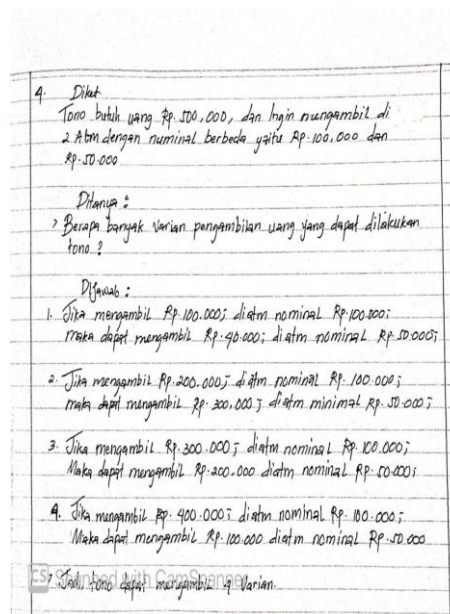 4. Diket
Tono butuh uang Rp. 500.000, dan Ingin mengambil di
2 Atm dengan numinal berbeda yaitu Rp. 100.000 dan
Rp. 50.000
Ditanya :
> Berapa banyak varian pengambilan uang yang dapat dilakukan
tono ?
Dijawab :
1. Jika mengambil Rp. 100.000; diatm nominal Rp. 100.000;
maka dapat mengambil Rp. 40.000; diatm nominal Rp. 50.000;
2. Jika mengambil Rp. 200.000; diatm nominal Rp. 100.000;
maka dapat mengambil Rp. 300.000; diatm minimal Rp. 50.000;
3. Jika mengambil Rp. 300.000; diatm nominal Rp. 100.000;
Maka dapat mengambil Rp. 200.000 diatm nominal Rp. 50.000;
4. Jika mengambil Rp. 400.000; diatm nominal Rp. 100.000;
Maka dapat mengambil Rp. 100.000 diatm nominal Rp. 50.000
> Jadi, tono dapat mengambil 4 Varian.
CS Scanned with CamScanner